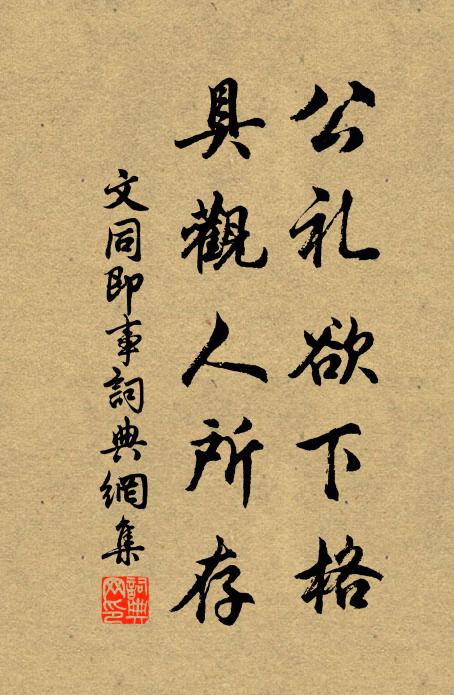 公礼欲下格
具觀人所存
文同即事詞典網集
詞典网印